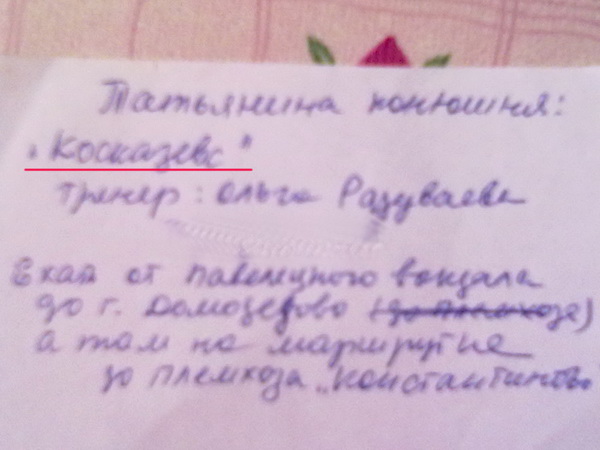 Татьянина конюшня:
„Косказевс"
тренер: Ольга Разуваева
Ехай от павелецкого вокзала
до г. Домодедово (до племхоза)
а там на маршрутке
до племхоза „Константиново